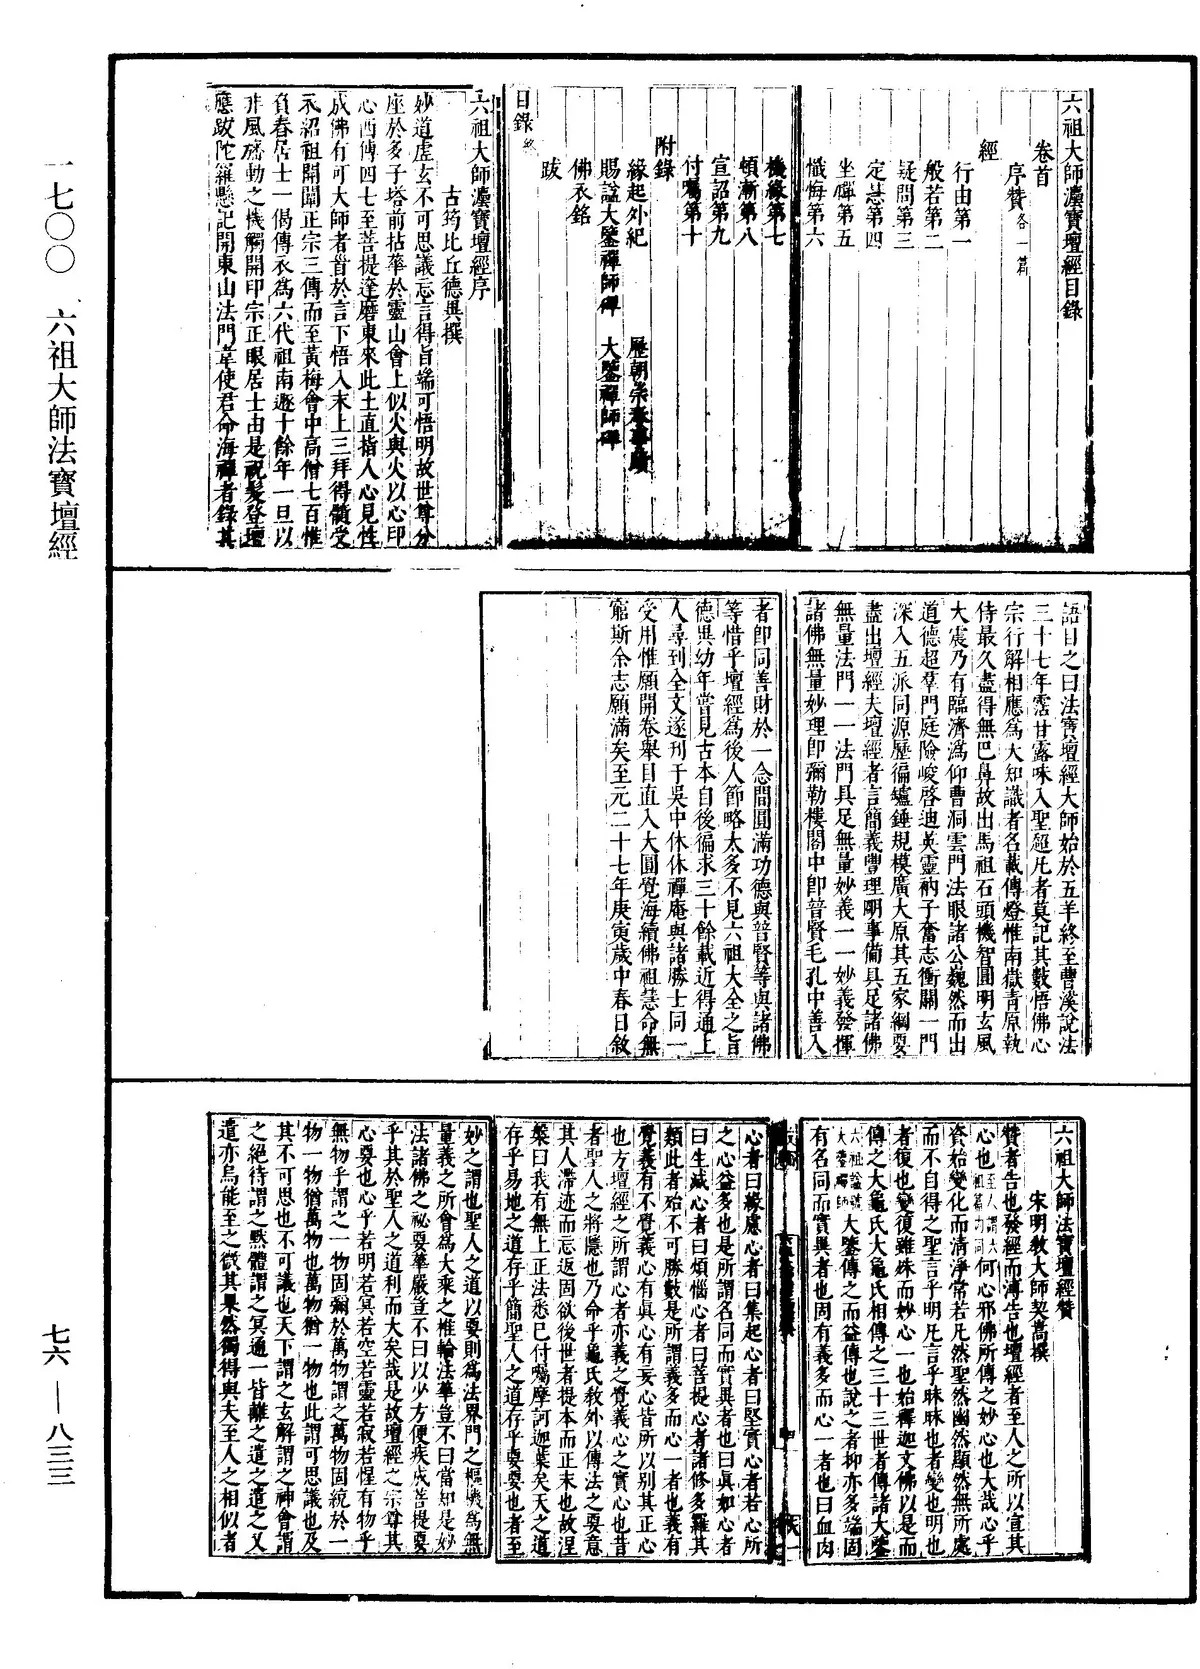 一七〇〇 六祖大師法寶壇經
七六—八三三
六祖大師灋寶壇經目錄
卷首
序贊各一篇
經
行由第一
般若第二
疑問第三
定慧第四
坐禪第五
懺悔第六
機緣第七
頓漸第八
宣詔第九
付囑第十
附錄
緣起外紀 歷朝崇奉事蹟
賜謚大鑒禪師碑 大鑒禪師碑
佛衣銘
跋
目錄終
六祖大師灋寶壇經序
古筠比丘德異撰
妙道虛玄不可思議忘言得旨端可悟明故世尊分
座於多子塔前拈華於靈山會上似火與火以心印
心西傳四七至菩提達磨東來此土直指人心見性
成佛有可大師者首於言下悟入末上三拜得髓受
衣紹祖開闡正宗三傳而至黃梅會中高僧七百惟
負舂居士一偈傳衣爲六代祖南遯十餘年一旦以
非風旛動之機觸開印宗正眼居士由是祝髮登壇
應跋陀羅懸記開東山法門韋使君命海禪者錄其
語目之曰法寶壇經大師始於五羊終至曹溪說法
三十七年霑甘露味入聖超凡者莫記其數悟佛心
宗行解相應爲大知識者名載傳燈惟南嶽青原執
侍最久盡得無巴鼻故出馬祖石頭機智圓明玄風
大震乃有臨濟潙仰曹洞雲門法眼諸公巍然而出
道德超羣門庭險峻啓迪英靈衲子奮志衝關一門
深入五派同源歷徧爐錘規模廣大原其五家綱要
盡出壇經夫壇經者言簡義豐理明事備具足諸佛
無量法門一一法門具足無量妙義一一妙義發揮
諸佛無量妙理即彌勒樓閣中即普賢毛孔中善入
者即同善財於一念間圓滿功德與普賢等與諸佛
等惜乎壇經爲後人節略太多不見六祖大全之旨
德異幼年嘗見古本自後徧求三十餘載近得通上
人尋到全文遂刊于吳中休休禪庵與諸勝士同一
受用惟願開卷舉目直入大圓覺海續佛祖慧命無
窮斯余志願滿矣至元二十七年庚寅歲中春日敘
六祖大師法寶壇經贊
宋明教大師契嵩撰
贊者告也發經而溥告也壇經者至人之所以宣其
心也至人謂六祖篇內同何心邪佛所傳之妙心也大哉心乎
資始變化而清淨常若凡然聖然幽然顯然無所處
而不自得之聖言乎明凡言乎昧昧也者變也明也
者復也變復雖殊而妙心一也始釋迦文佛以是而
傳之大龜氏大龜氏相傳之三十三世者傳諸大鑒
六祖謚號大鑒禪師大鑒傳之而益傳也說之者抑亦多端固
有名同而實異者也固有義多而心一者也曰血肉
心者曰緣慮心者曰集起心者曰堅實心者若心所
之心益多也是所謂名同而實異者也曰眞如心者
曰生滅心者曰煩惱心者曰菩提心者諸修多羅其
類此者殆不可勝數是所謂義多而心一者也義有
覺義有不覺義心有眞心有妄心皆所以別其正心
也方壇經之所謂心者亦義之覺義心之實心也昔
者聖人之將隱也乃命乎龜氏教外以傳法之要意
其人滯迹而忘返固欲後世者提本而正末也故涅
槃曰我有無上正法悉已付囑摩訶迦葉矣天之道
存乎易地之道存乎簡聖人之道存乎要要也者至
妙之謂也聖人之道以要則爲法界門之樞機爲無
量義之所會爲大乘之椎輪法華豈不曰當知是妙
法諸佛之祕要華嚴豈不曰以少方便疾成菩提要
乎其於聖人之道利而大矣哉是故壇經之宗尊其
心要也心乎若明若冥若空若靈若寂若惺有物乎
無物乎謂之一物固彌於萬物謂之萬物固統於一
物一物猶萬物也萬物猶一物也此謂可思議也及
其不可思也不可議也天下謂之玄解謂之神會謂
之絕待謂之默體謂之冥通一皆離之遣之遣之又
遣亦烏能至之微其果然獨得與夫至人之相似者